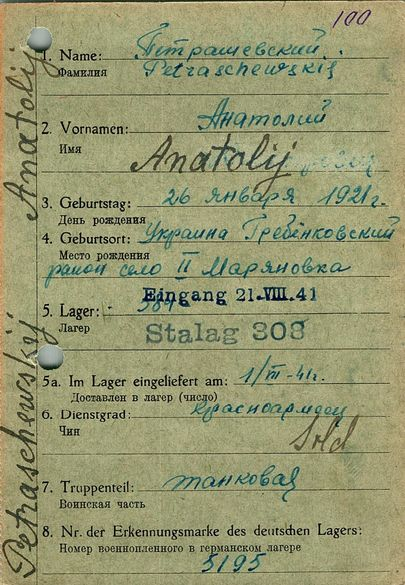 100
1. Name: Петрашевский
Фамилия Petraschewskij
2. Vornamen: Анатолий
Имя Anatolij
3. Geburtstag: 26 января 1921 г.
День рождения
4. Geburtsort: Украина Гребёнковский
Место рождения
район село II Маряновка
Eingang 21. VIII. 41
5. Lager:
Лагерь Stalag 308
5a. Im Lager eingeliefert am:
Доставлен в лагерь (число)
6. Dienstgrad: Красноармеец
Чин Sold
7. Truppenteil: танковая
Воинская часть
8. Nr. der Erkennungsmarke des deutschen Lagers:
Номер военнопленного в германском лагере
5195
Petraschewskij Anatolij